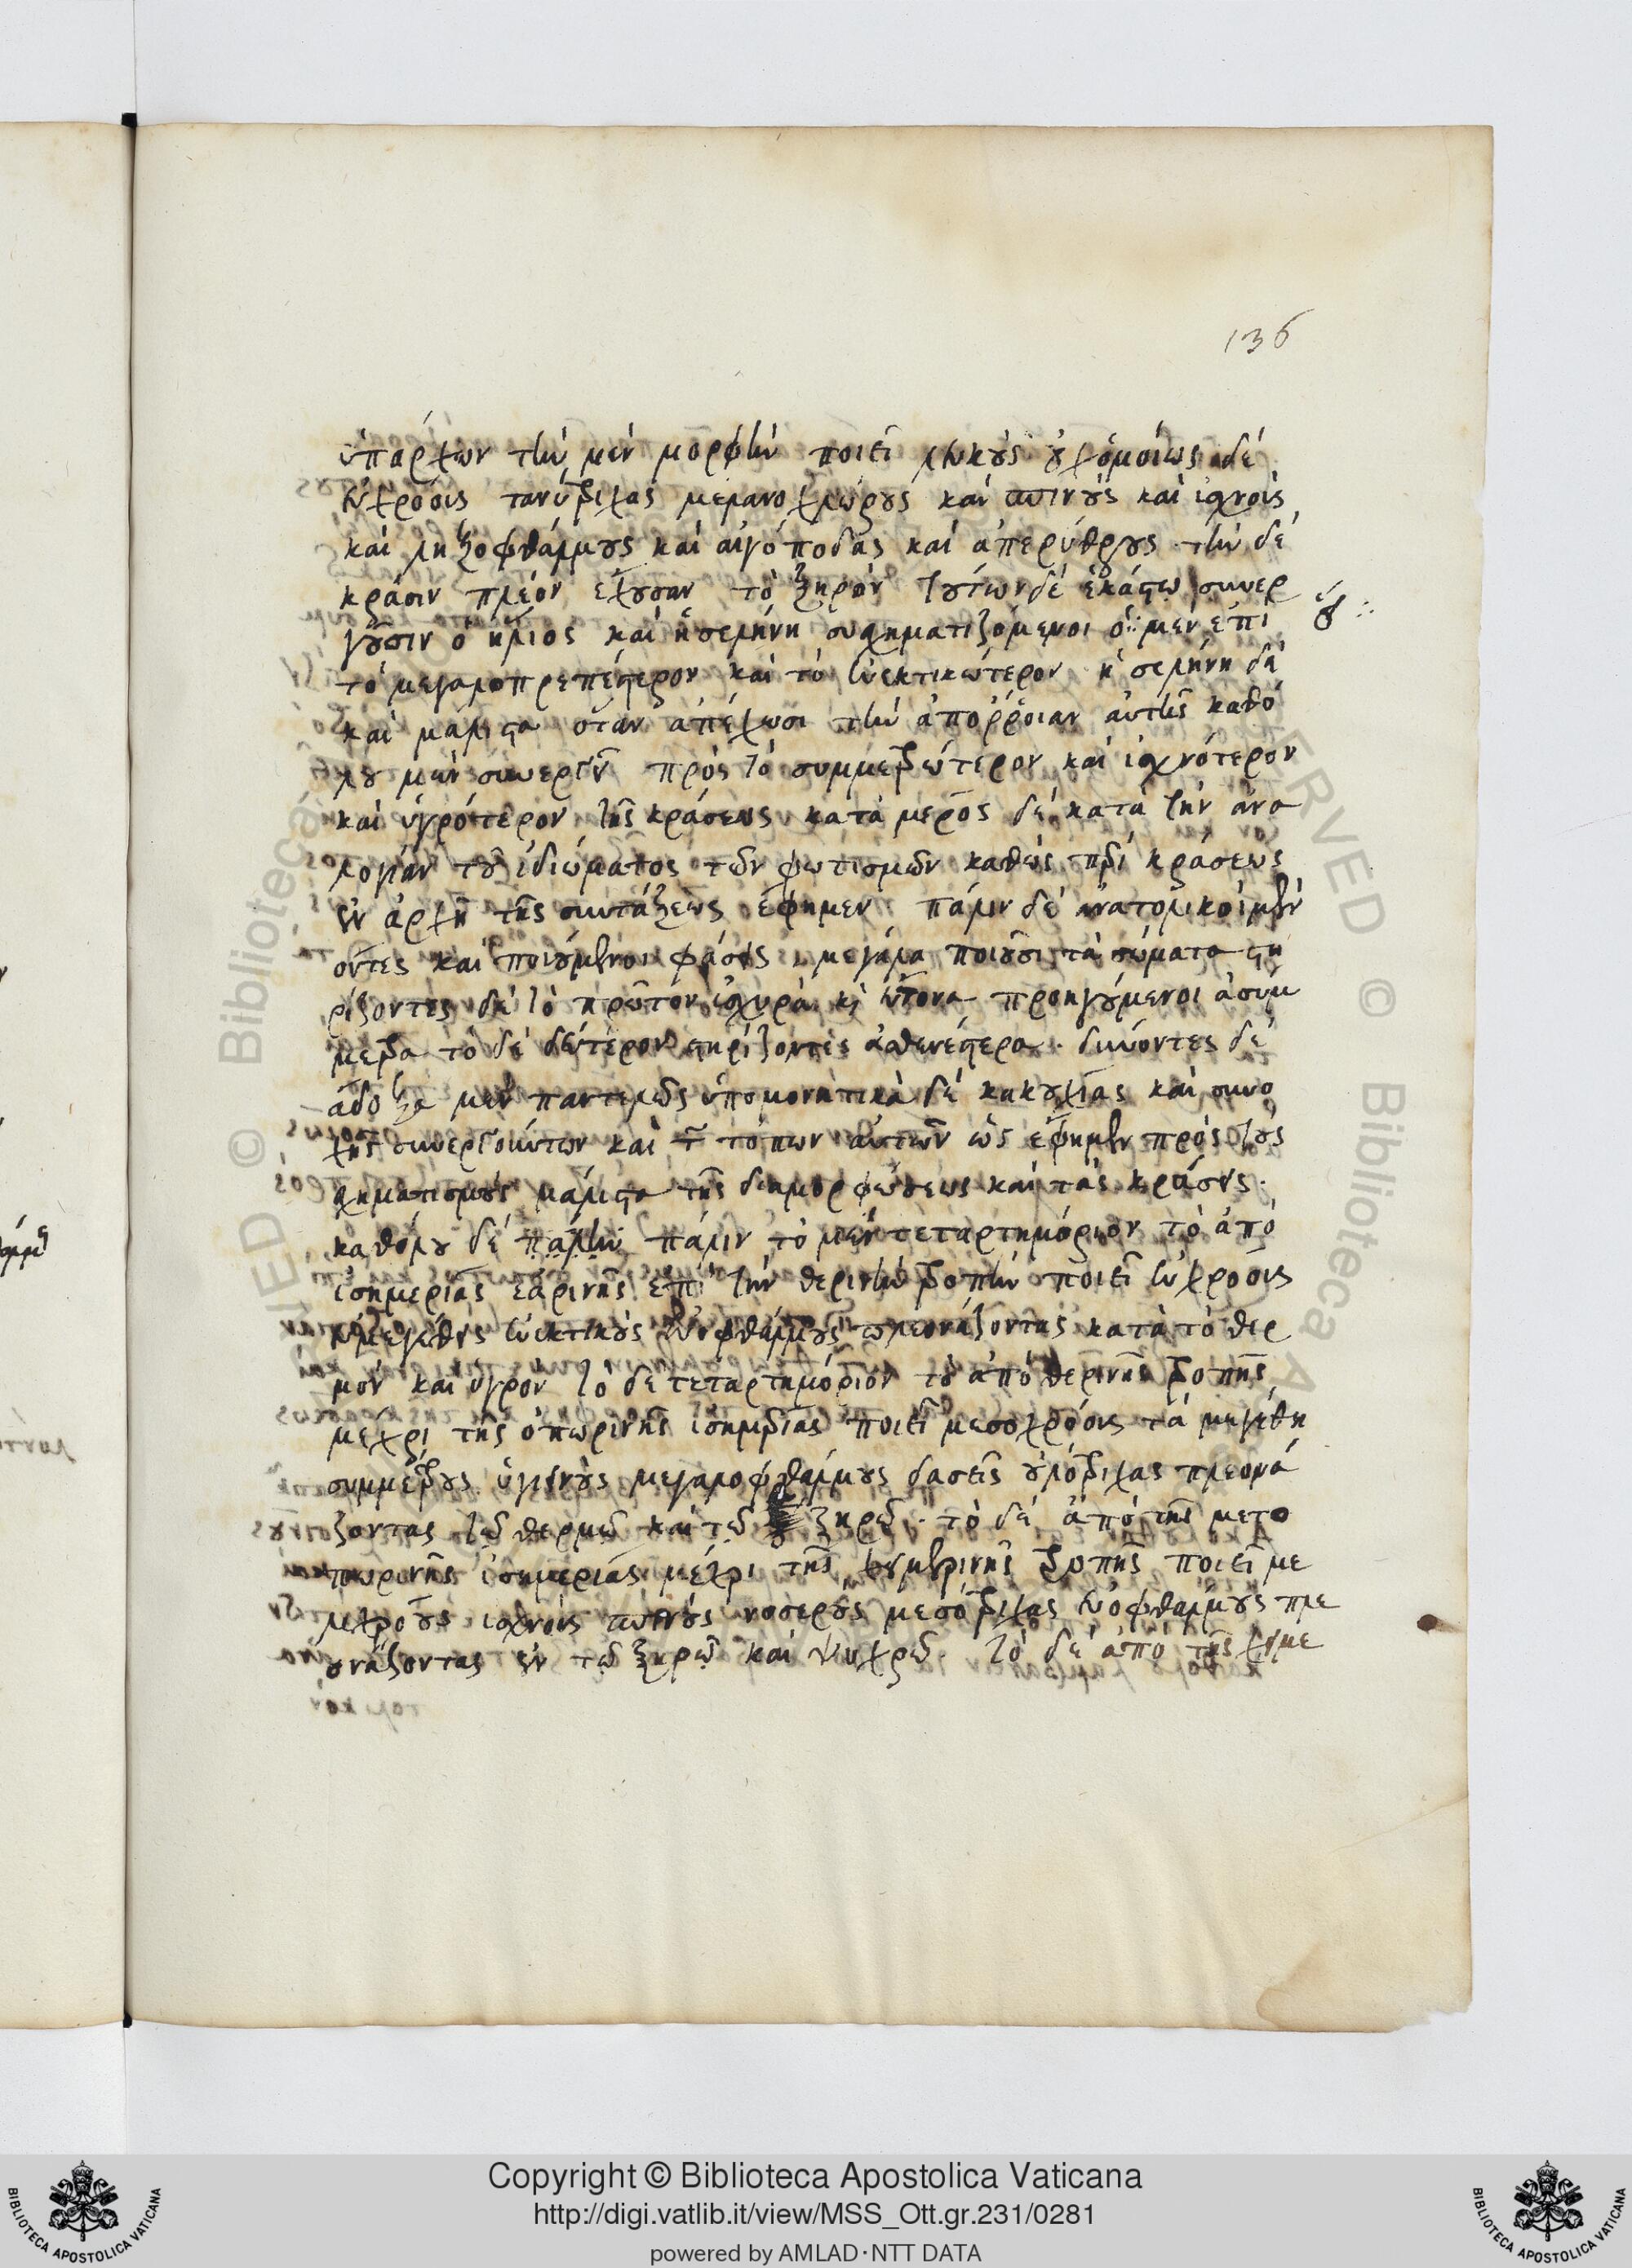 136
ὑπάρχων τὴν μὲν μορφὴν ποιεῖ λευκοὺς οὐχ ὁμοίως δὲ
εὐχρόοις τανύτριχας μελανοχλώρους καὶ πυινοὺς καὶ ἰσχνοὺς
καὶ ληξοφθάλμους καὶ αἰγόποδας καὶ ἀπερύθρους τὴν δὲ
κρᾶσιν πλέον ἔχουσαν τὸ ξηρὸν τούτων δὲ ἑκάστω συνερ
γοῦσιν ὁ ἥλιος καὶ ἡ σελήνη συσχηματιζόμενοι ὁ μὲν ἐπὶ
τὸ μεγαλοπρεπέστερον καὶ τὸ εὐεκτικώτερον ἡ σελήνη δὲ
καὶ μάλιστα ὅταν ἀπέχωσι τὴν ἀπόρροιαν αὐτῆς καθό
λου μὲν συνεργεῖν πρὸς τὸ συμμετρώτερον καὶ ἰσχνότερον
καὶ ὑγρότερον τῆς κράσεως κατὰ μέρος δὲ κατὰ τὴν ἀνα
λογίαν τοῦ ἰδιώματος τῶν φωτισμῶν καθὼς περὶ κράσεως
ἐν ἀρχῇ τῆς συντάξεως ἔφημεν πάλιν δὲ ἀνατολικοὶ μὲν
ὄντες καὶ ποιούμενοι φάσεις μεγάλα ποιοῦσι τὰ σώματα στη
ρίζοντες δὲ τὸ πρῶτον ἰσχυρὰ κ εὔτονα προηγούμενοι ἀσυμ
μετρα τὸ δὲ δεύτερον στηρίζοντες ἀσθενέστερα · δύνοντες δὲ
ἄδοξα μὲν παντελῶς ὑπομονητικὰ δὲ κακουχίας καὶ συνο
χῆς συνεργούντων καὶ τ τόπων αὐτῶν ὡς ἔφημεν πρὸς τοὺς
σχηματισμοὺς μάλιστα τῆς διαμορφώσεως καὶ τὰς κράσεις ·
καθόλου δὲ πάλιν πάλιν τὸ μὲν τεταρτημόριον τὸ ἀπὸ
ἰσημερίας ἐαρινῆς ἐπὶ τὴν θερινὴν τροπὴν ποιεῖ εὐχρόοις
εὐμεγέθεις εὐεκτικοὺς εὐοφθάλμους πλεονάζοντας κατὰ τὸ θερ
μὸν καὶ ὑγρὸν τὸ δὲ τεταρτημόριον τὸ ἀπὸ θερινῆς τροπῆς
μέχρι τῆς ὀπωρινῆς ἰσημερίας ποιεῖ μεσοχρόοις τὰ μεγέθη
συμμέτρους ὑγιεινοὺς μεγαλοφθάλμους δασεῖς οὐλότριχας πλεονά
ζοντας τῶ θερμῶ καὶ τῶ ξηρῶ · τὸ δὲ ἀπὸ τῆς μετο
πωρινῆς ἰσημερίας μέχρι τῆς χειμερινῆς τροπῆς ποιεῖ με
λιχρόους ἰσχνοὺς πυινοὺς νοσεροὺς μεσότριχας εὐοφθάλμους πλε
ονάζοντας ἐν τῶ ξηρῶ καὶ ψυχρῶ · τὸ δὲ ἀπὸ τῆς χειμε
BIBLIOTECA APOSTOLICA VATICANA
Copyright © Biblioteca Apostolica Vaticana
http://digi.vatlib.it/view/MSS_Ott.gr.231/0281
powered by AMLAD·NTT DATA
BIBLIOTECA APOSTOLICA VATICANA